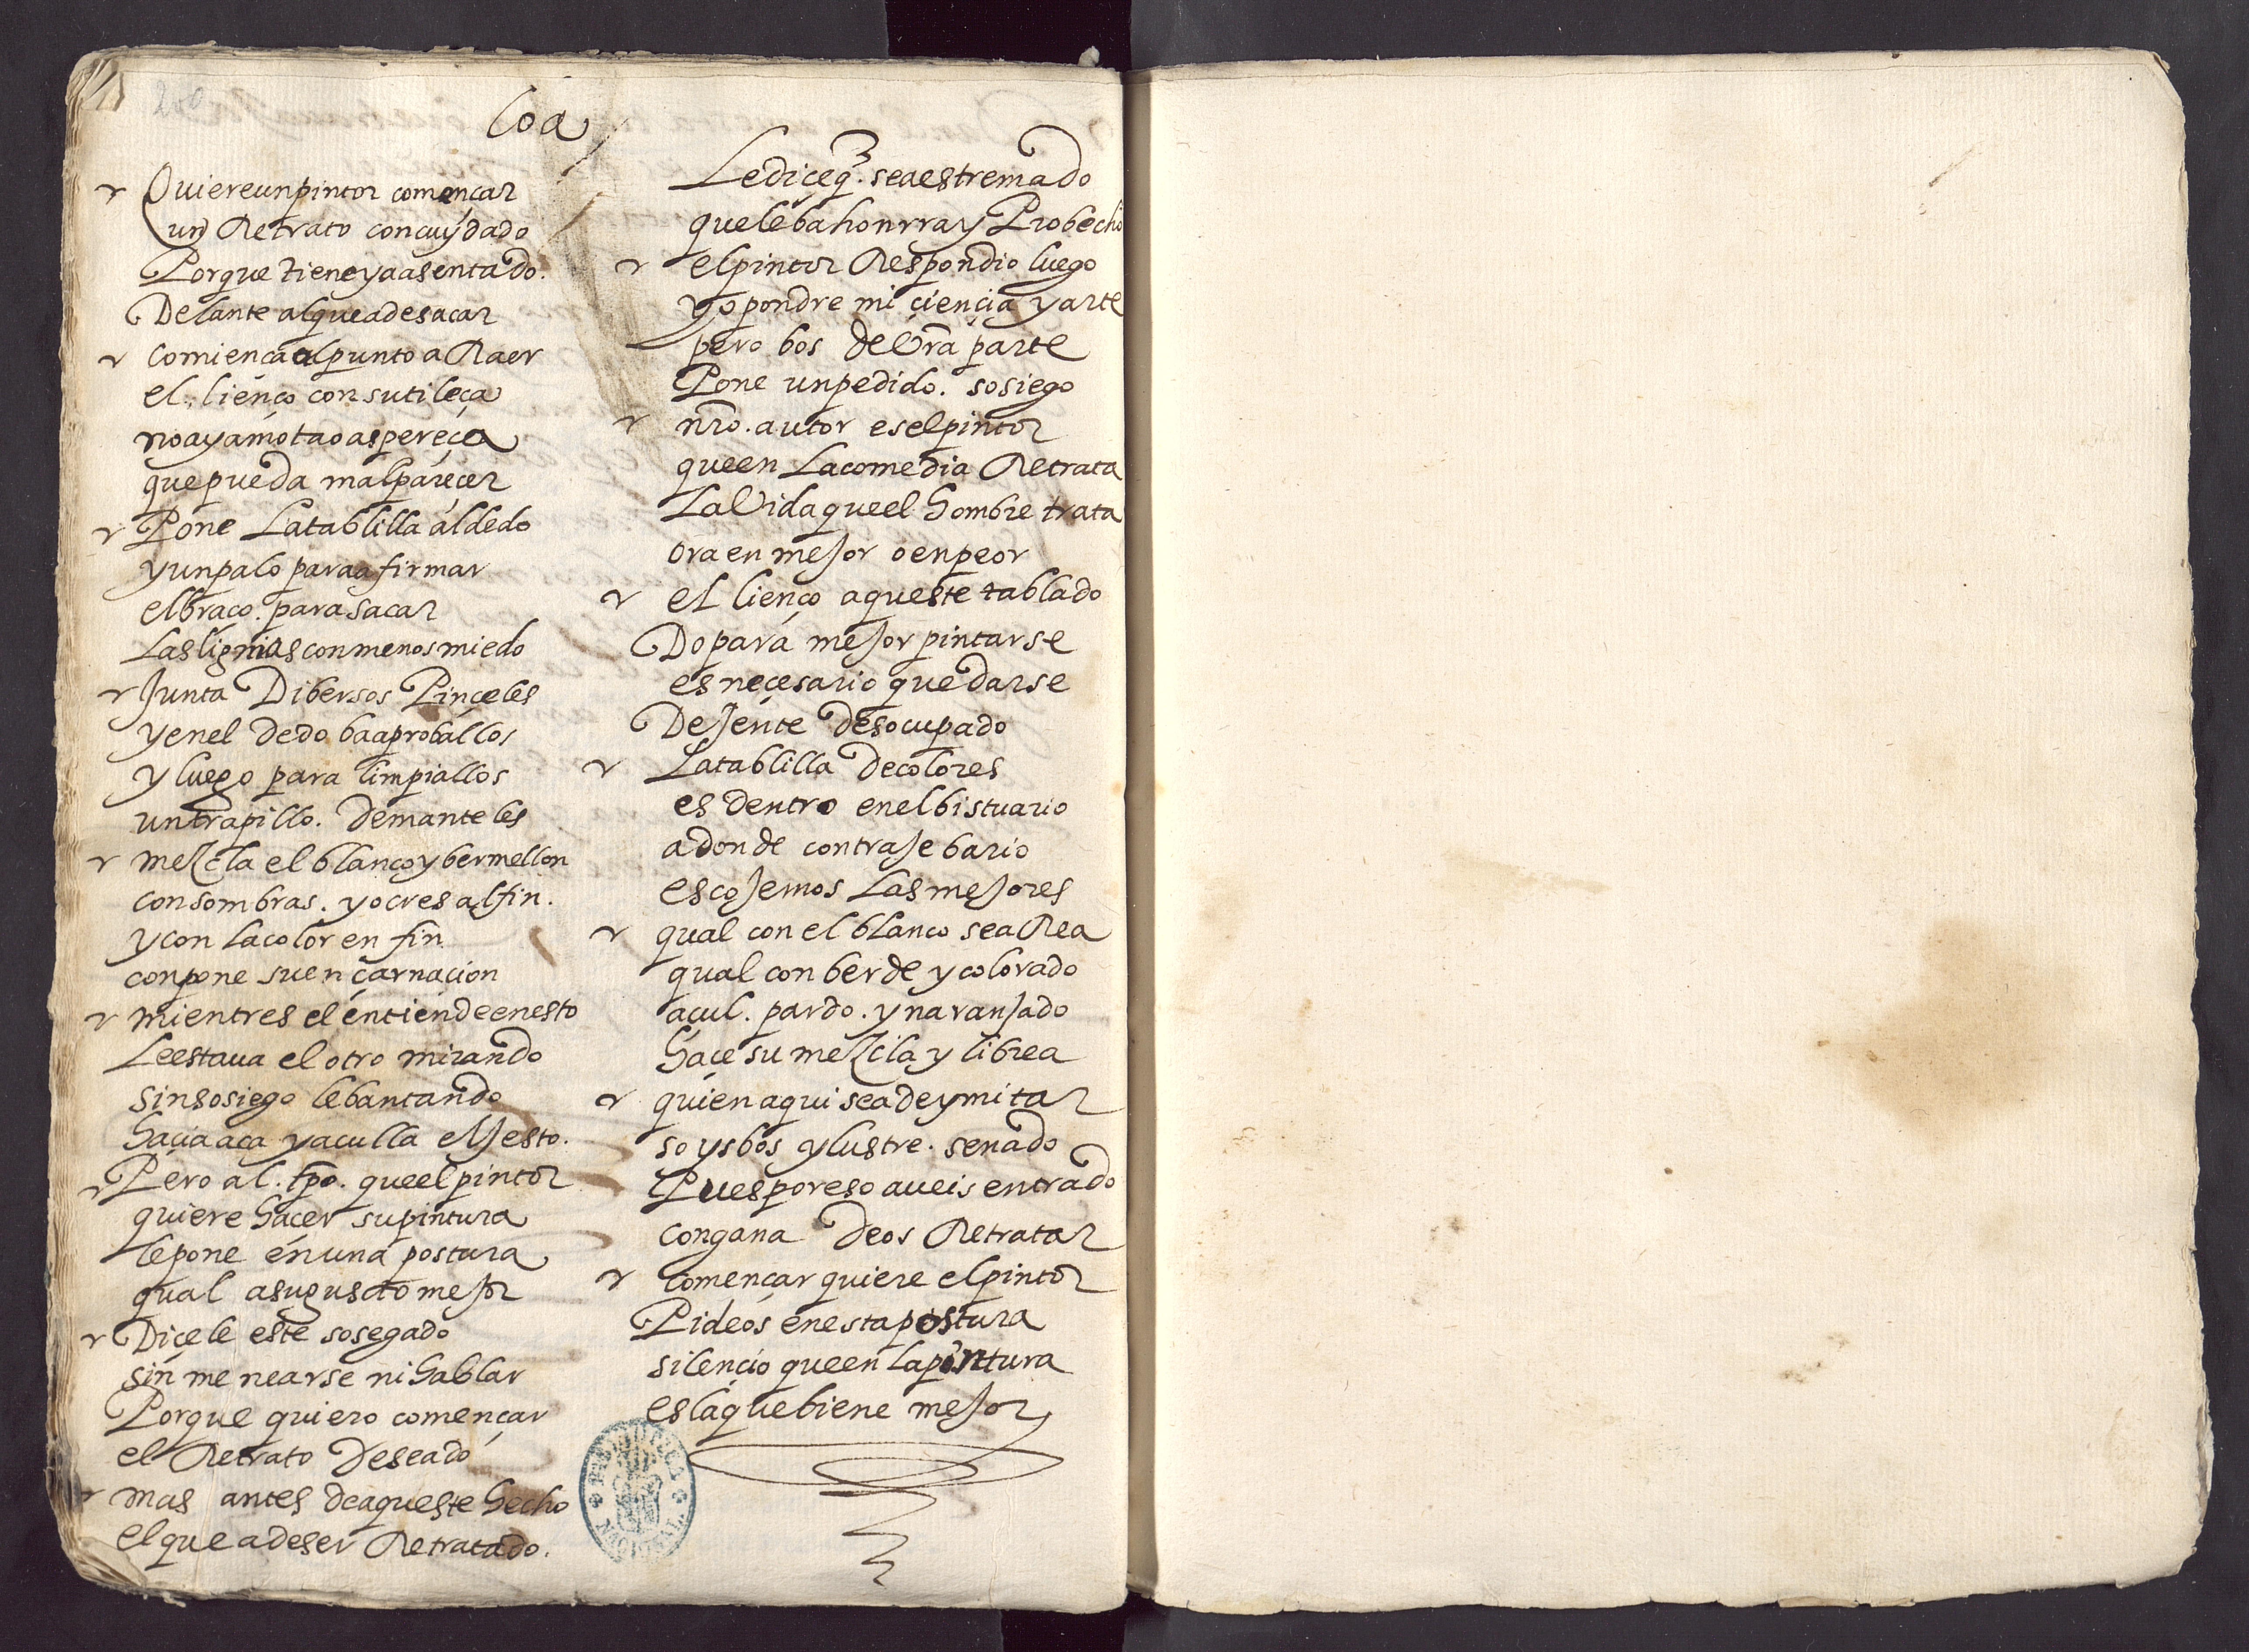 200
Loa
Quiere un pintor començar
un Retrato con cuydado
Porque tiene ya asentado.
Delante al que a de sacar
Comiença al punto a Raer
el lienço con sutileça
no aya mota o aspereça
que pueda mal pareçer
Pone La tablilla al dedo
y un palo para afirmar
el braço. para sacar
Las lignias con menos miedo
Junta Dibersos Pinçeles
y en el dedo ba a proballos
y luego para limpiallos
un trapillo. de manteles
mezcla el blanco y bermellon
con sombras. y ocres al fin.
y con La color en fin
conpone su encarnaçion
mientres el entiende en esto
Le estaua el otro mirando
sin sosiego lebantando
haçia aca y aculla el Jesto.
Pero al. tpo. que el pintor
quiere haçer su pintura
le pone en una postura
qual a su gusto mejor
Diçele este sosegado
sin menearse ni hablar
Porque quiero començar
el Retrato Deseado
mas antes de aqueste hecho
el que a de ser Retratado.
Le diçe q. sea estremado
que le ba honrra y Probecho
el pintor Respondio luego
yo pondre mi çiençia y arte
pero bos de Vra parte
Pone un pedido. sosiego
nro. autor es el pintor
que en La comedia Retrata
La Vida que el hombre trata
ora en mejor o en peor
el lienço aqueste tablado
Do para mejor pintarse
es neçesario quedarse
De Jente desocupado
La tablilla de colores
es dentro en el bistuario
adonde con traje bario
escojemos Las mejores
qual con el blanco se a Rea
qual con berde y colorado
açul. pardo. y naranjado
haçe su mezcla y librea
quien aqui se a de ymitar
soys bos ylustre. senado
Pues por eso aueis entrado
con gana de os Retratar
Començar quiere el pintor
Pideos en esta postura
silençio que en La pintura
es la que biene mejor